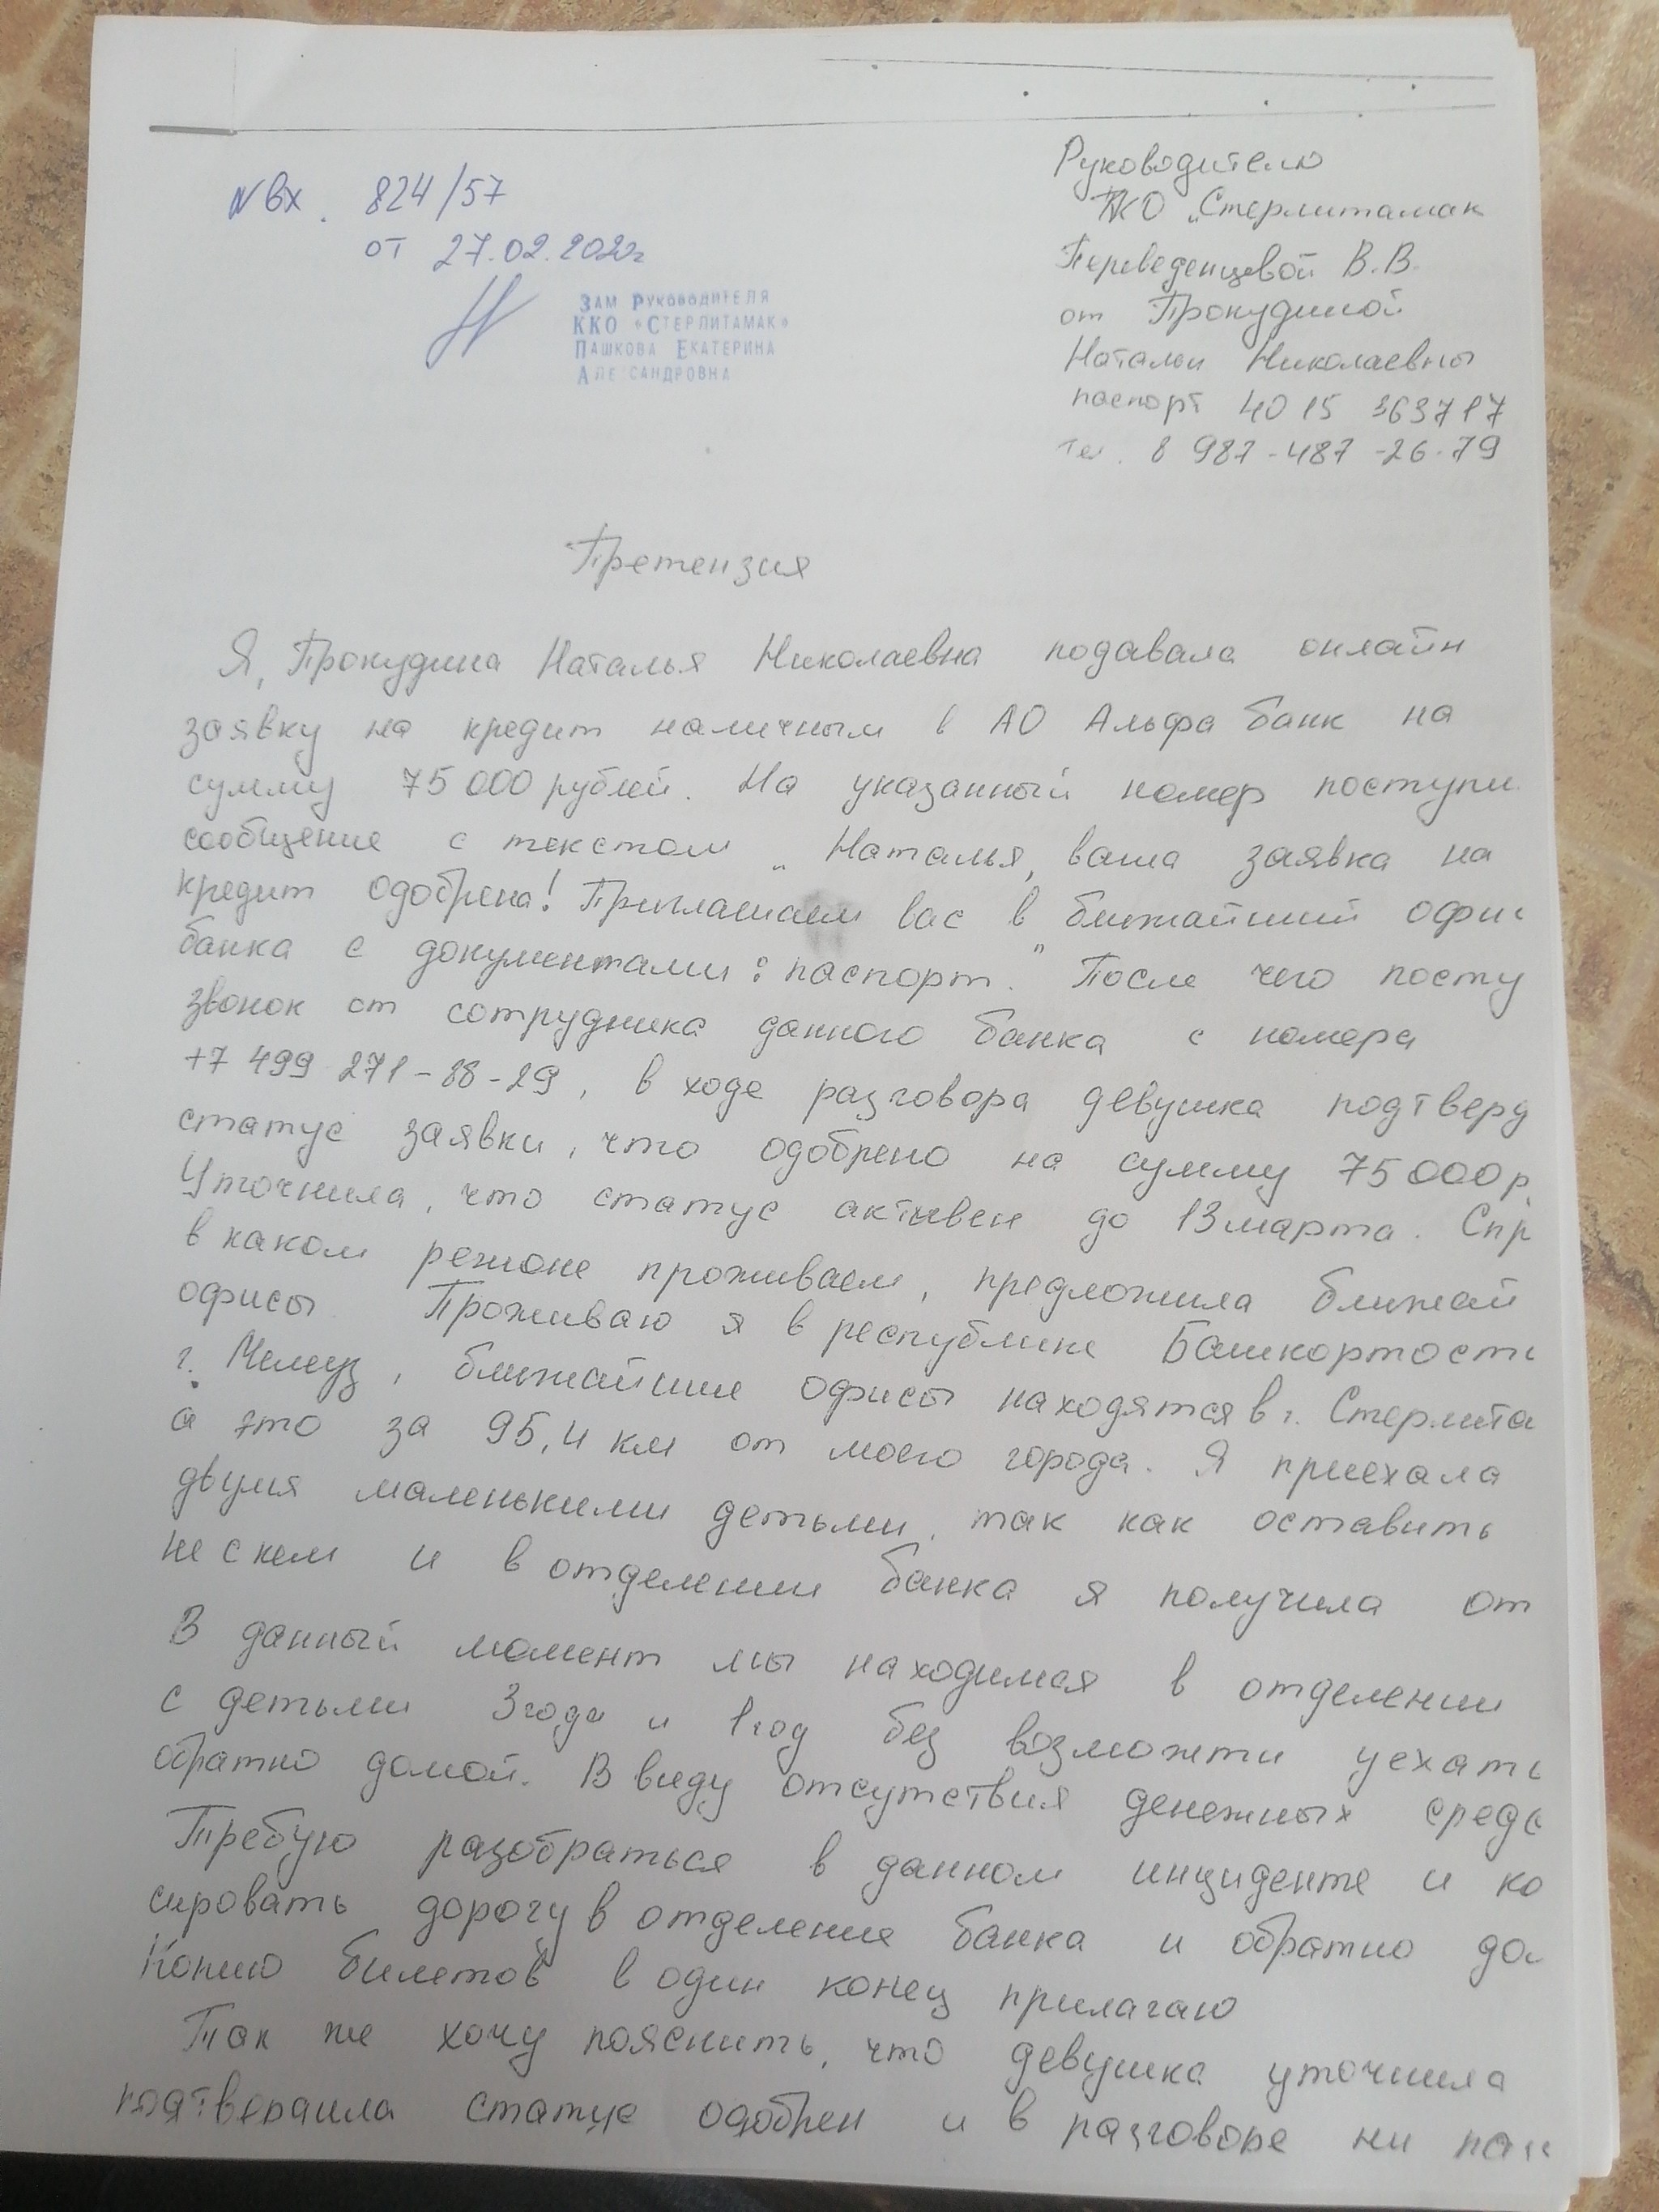 N вх. 824/57
от 27.02.2020г
ЗАМ РУКОВОДИТЕЛЯ
ККО «СТЕРЛИТАМАК»
ПАШКОВА ЕКАТЕРИНА
АЛЕКСАНДРОВНА
Руководителю
ККО „Стерлитамак
Переведенцевой В.В.
от Прокудиной
Натальи Николаевны
паспорт 4015 363717
тел. 8 987-487-26-79
Претензия
Я, Прокудина Наталья Николаевна подавала онлайн
заявку на кредит наличными в АО Альфа банк на
сумму 75 000 рублей. На указанный номер поступи
сообщение с текстом „Наталья, ваша заявка на
кредит одобрена! Приглашаем вас в ближайший офис
банка с документами: паспорт." После чего посту
звонок от сотрудника данного банка с номера
+7 499 271-88-29, в ходе разговора девушка подтверд
статус заявки, что одобрено на сумму 75 000 р.
Уточнила, что статус активен до 13 марта. Спр
в каком регионе проживаем, предложила ближай
офисы. Проживаю я в республике Башкортост
г. Мелеуз, ближайшие офисы находятся в г. Стерлита
а это за 95,4 км от моего города. Я приехала
двумя маленькими детьми, так как оставить
не с кем и в отделении банка я получила от
В данный момент мы находимся в отделении
с детьми 3 года и 1 год без возможти уехать
обратно домой. В виду отсутствия денежных средс
Требую разобраться в данном инциденте и ко
сировать дорогу в отделение банка и обратно до
Копию билетов в один конец прилагаю
Так же хочу пояснить, что девушка уточнила
подтвердила статус одобрен и в разговоре ни